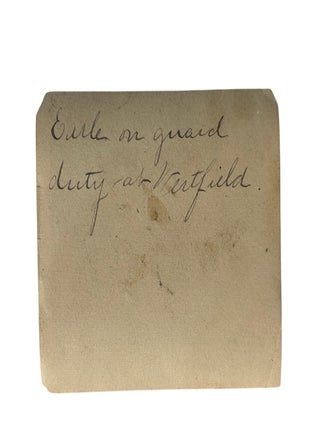 Earle on guard
duty at Westfield.